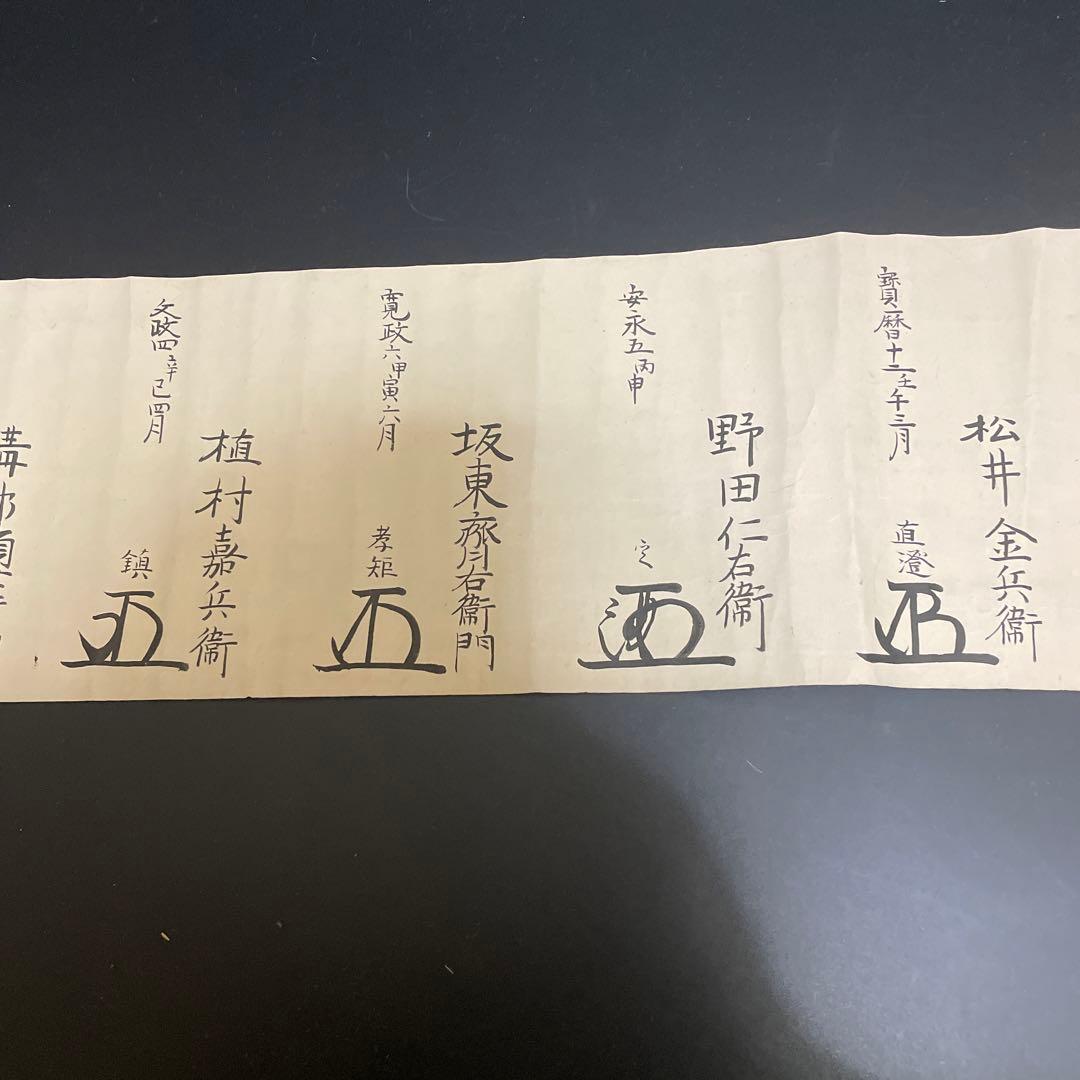 松井金兵衞
寶暦十二壬午三月
直澄
野田仁右衞
安永五丙申
定
坂東齊右衞門
寛政六甲寅六月
孝矩
植村嘉兵衞
文政四辛巳四月
鎮